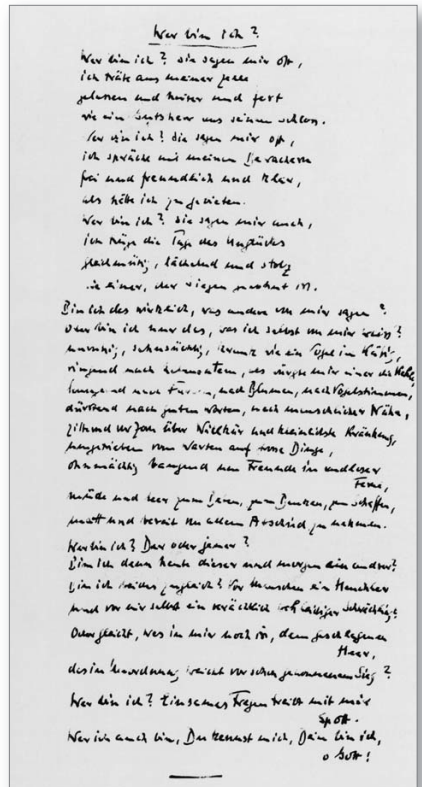 Wer bin ich?
Wer bin ich? Sie sagen mir oft,
ich träte aus meiner Zelle
gelassen und heiter und fest
wie ein Gutsherr aus seinem Schloss.
Wer bin ich? Sie sagen mir oft,
ich spräche mit meinen Bewachern
frei und freundlich und klar,
als hätte ich zu gebieten.
Wer bin ich? Sie sagen mir auch,
ich trüge die Tage des Unglücks
gleichmütig, lächelnd und stolz
wie einer, der Siegen gewohnt ist.
Bin ich das wirklich, was andere von mir sagen?
Oder bin ich nur das, was ich selbst von mir weiss?
unruhig, sehnsüchtig, krank wie ein Vogel im Käfig,
ringend nach Lebensatem, als würgte mir einer die Kehle,
hungernd nach Farben, nach Blumen, nach Vogelstimmen,
dürstend nach guten Worten, nach menschlicher Nähe,
zitternd vor Zorn über Willkür und kleinlichste Kränkung,
umgetrieben vom Warten auf grosse Dinge,
ohnmächtig bangend um Freunde in endloser
Ferne,
müde und leer zum Beten, zum Denken, zum Schaffen,
matt und bereit von allem Abschied zu nehmen.
Wer bin ich? Der oder jener?
Bin ich denn heute dieser und morgen ein andrer?
Bin ich beides zugleich? Vor Menschen ein Heuchler
und vor mir selbst ein verächtlich wehleidiger Schwächling?
Oder gleicht, was in mir noch ist, dem geschlagenen
Heer,
das in Unordnung weicht vor schon gewonnenem Sieg?
Wer bin ich? Einsames Fragen treibt mit mir
Spott.
Wer ich auch bin, Du kennst mich, Dein bin ich,
o Gott!